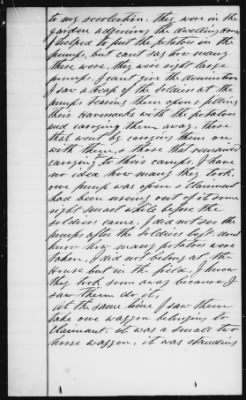 to my recolection. they were in the
garden adjoining the dwelling house
I helped to put the potatoes in the
pumps, but cant say how many
there were. they were right large
pumps. I cant give the demintion
I saw a heap of the soldiers at the
pumps tearing them open & filling
their Haversacks with the potatoes
and carrying them away. those
that went by carrying them on
with them, & those that remained
carrying to their camps. I have
no idea how many they took.
one pump was open & Claimant
had been using out of it some
right smart while before the
soldiers came. I did not see the
pumps after the soldiers left. dont
know how many potatoes were
taken. I did not belong at the
House but in the field. I know
they took some away because I
saw them do it.
At the same time I saw them
take one waggon belonging to
Claimant. it was a small two
horse waggon. it was standing